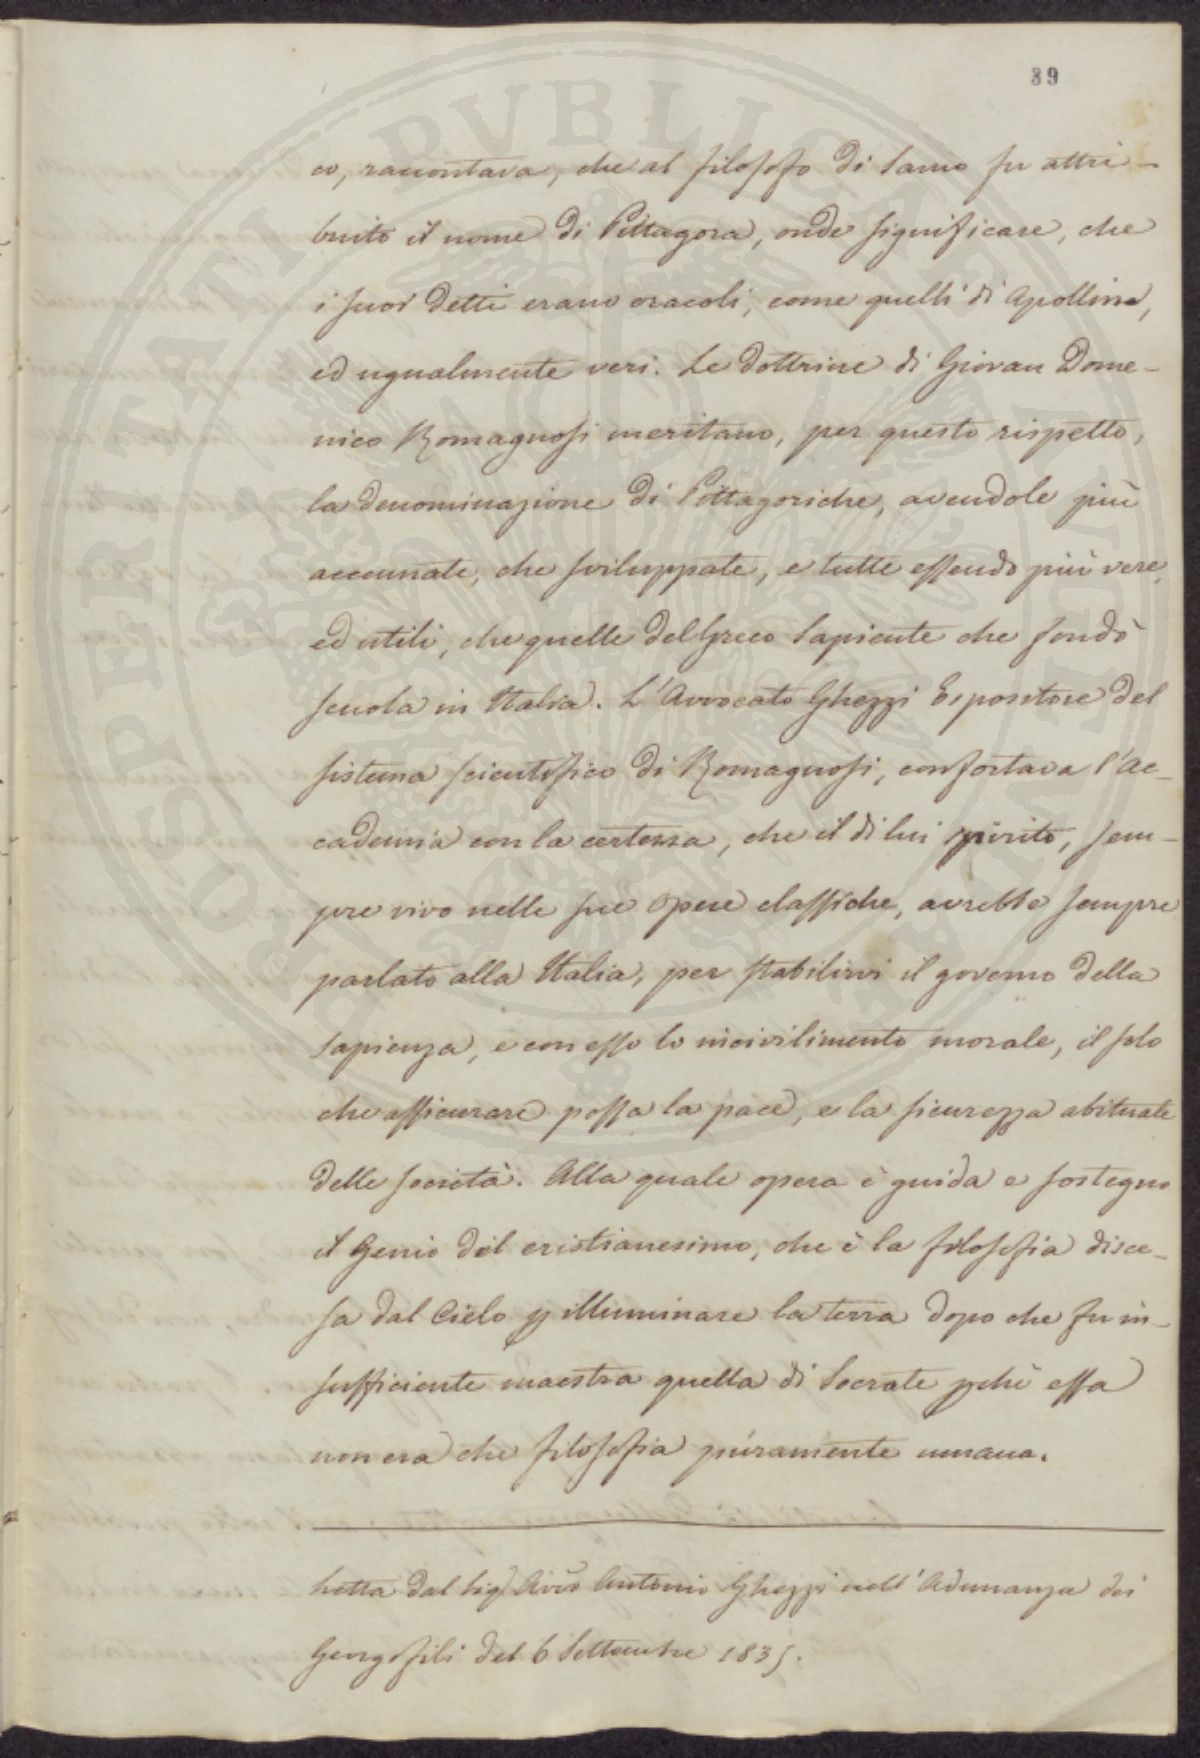 39
co, raccontava, che al filosofo di Samo fu attri-
buito il nome di Pittagora, onde significare, che
i suoi detti erano oracoli, come quelli di Apolline,
ed ugualmente veri. Le dottrine di Giovan Dome-
nico Romagnosi meritano, per questo rispetto,
la denominazione di Pittagoriche, avendole più
accennate, che sviluppate, e tutte essendo più vere,
ed utili, che quelle del Greco Sapiente che fondò
scuola in Italia. L'Avvocato Ghezzi Espositore del
sistema scientifico di Romagnosi, confortava l'Ac-
cademia con la certezza, che il di lui spirito, sem-
pre vivo nelle sue opere classiche, avrebbe sempre
parlato alla Italia, per stabilirvi il governo della
sapienza, e con esso lo incivilimento morale, il solo
che assicurare possa la pace, e la sicurezza abituale
delle società. Alla quale opera è guida e sostegno
il Genio del cristianesimo, che è la filosofia disce-
sa dal Cielo p illuminare la terra dopo che fu in-
sufficiente maestra quella di Socrate pchè essa
non era che filosofia puramente umana.
Letta dal Sig Avv Antonio Ghezzi nell'Adunanza dei
Georgofili del 6 Settembre 1835.
PROSPERITATI PVBLICAE AVGENDAE